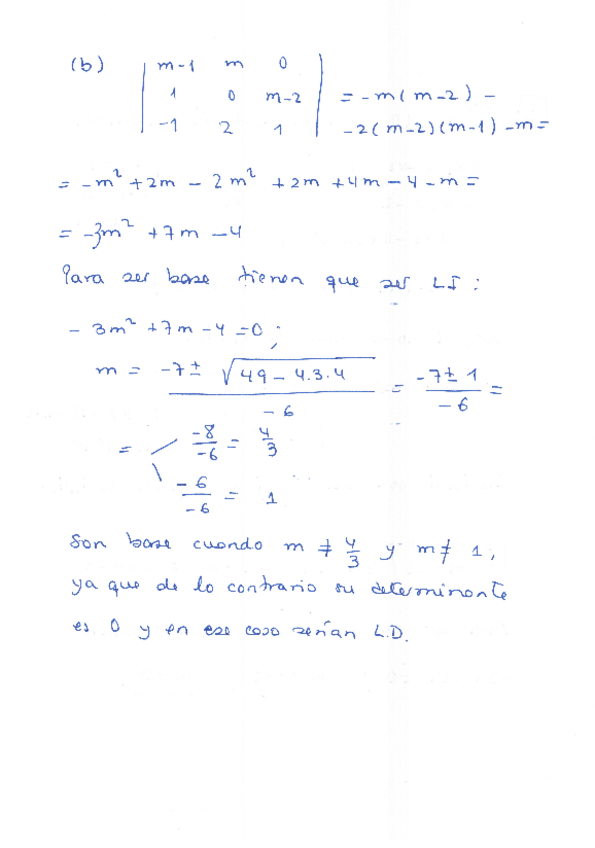 (b) | m-1 m 0 |
| 1 0 m-2 | = -m(m-2) -
| -1 2 1 | -2(m-2)(m-1) -m =
= -m² +2m - 2m² +2m +4m -4 -m =
= -3m² +7m -4
Para ser base tienen que ser LI :
- 3m² +7m -4 =0 ;
m = (-7 ± √(49 - 4.3.4)) / -6 = (-7 ± 1) / -6 =
= -8/-6 = 4/3
-6/-6 = 1
Son base cuando m ≠ 4/3 y m ≠ 1,
ya que de lo contrario su determinante
es 0 y en ese caso serían L.D.